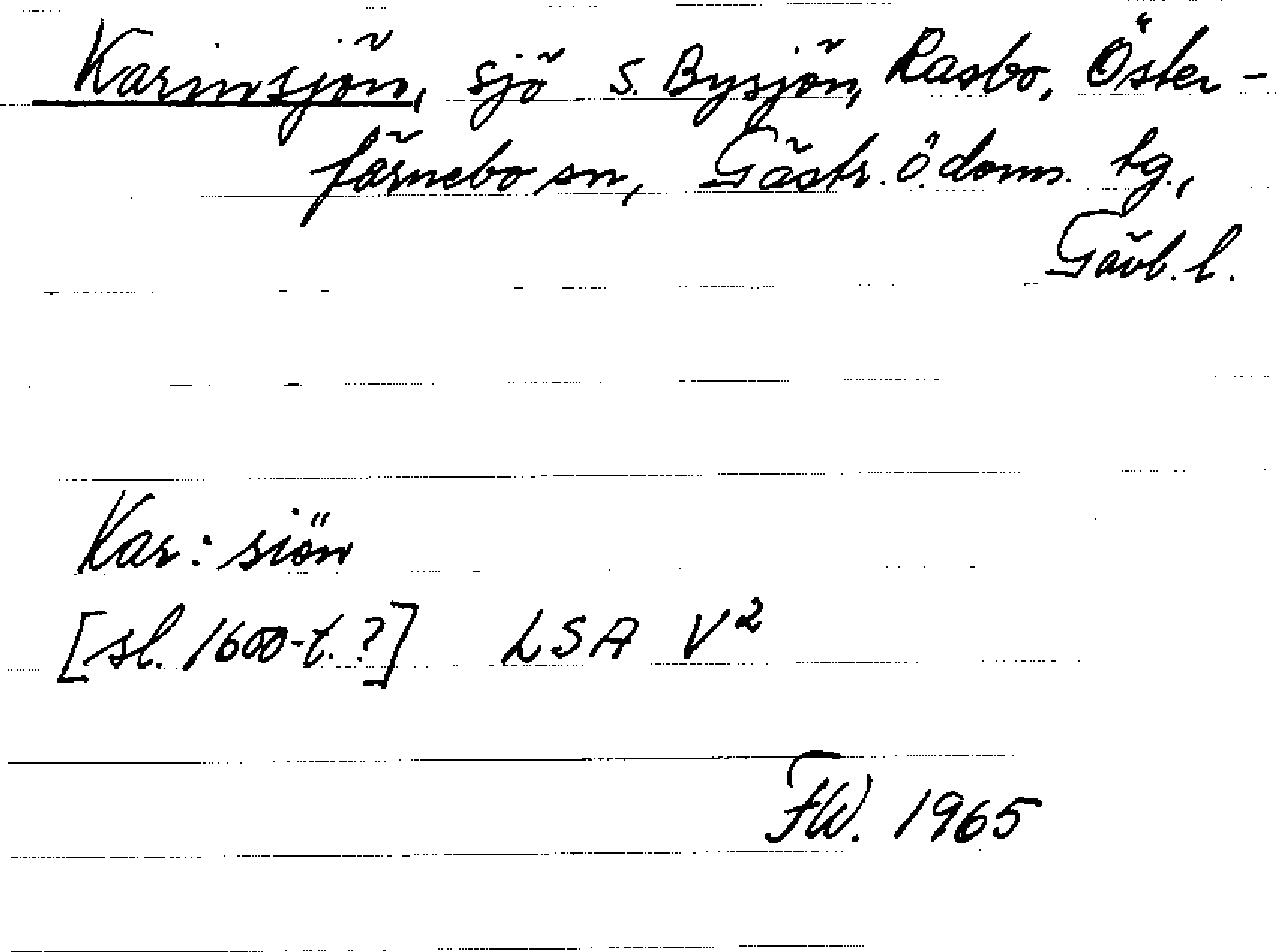 Karinsjön, sjö s. Bysjön, Rasbo, Öster-
färnebo sn, Gästr. ö. doms. tg.,
Gävb. l.
Kar: siön
[sl. 1600-t. ?] LSA V²
FW. 1965